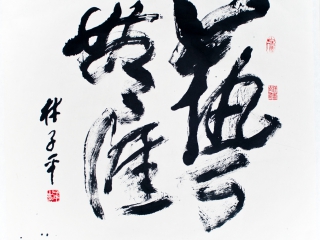 藝
無涯
林子平